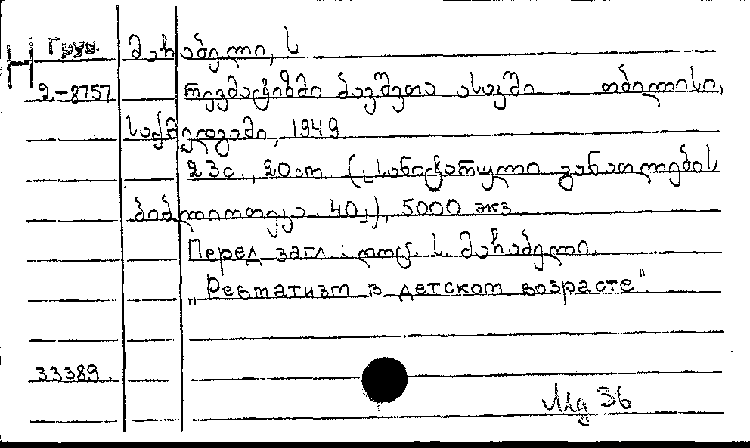 Н
Груз.
2-8757
მაჩაბელი, ს
რევმატიზმი ბავშვთა ასაკში თბილისი,
საქმედგამი, 1949
23с., 20см. („სანიტარული განათლების
ბიბლიოთეკა 40“), 5000 экз
Перед загл: დოც. ს. მაჩაბელი.
„Ревматизм в детском возрасте“.
33389
36